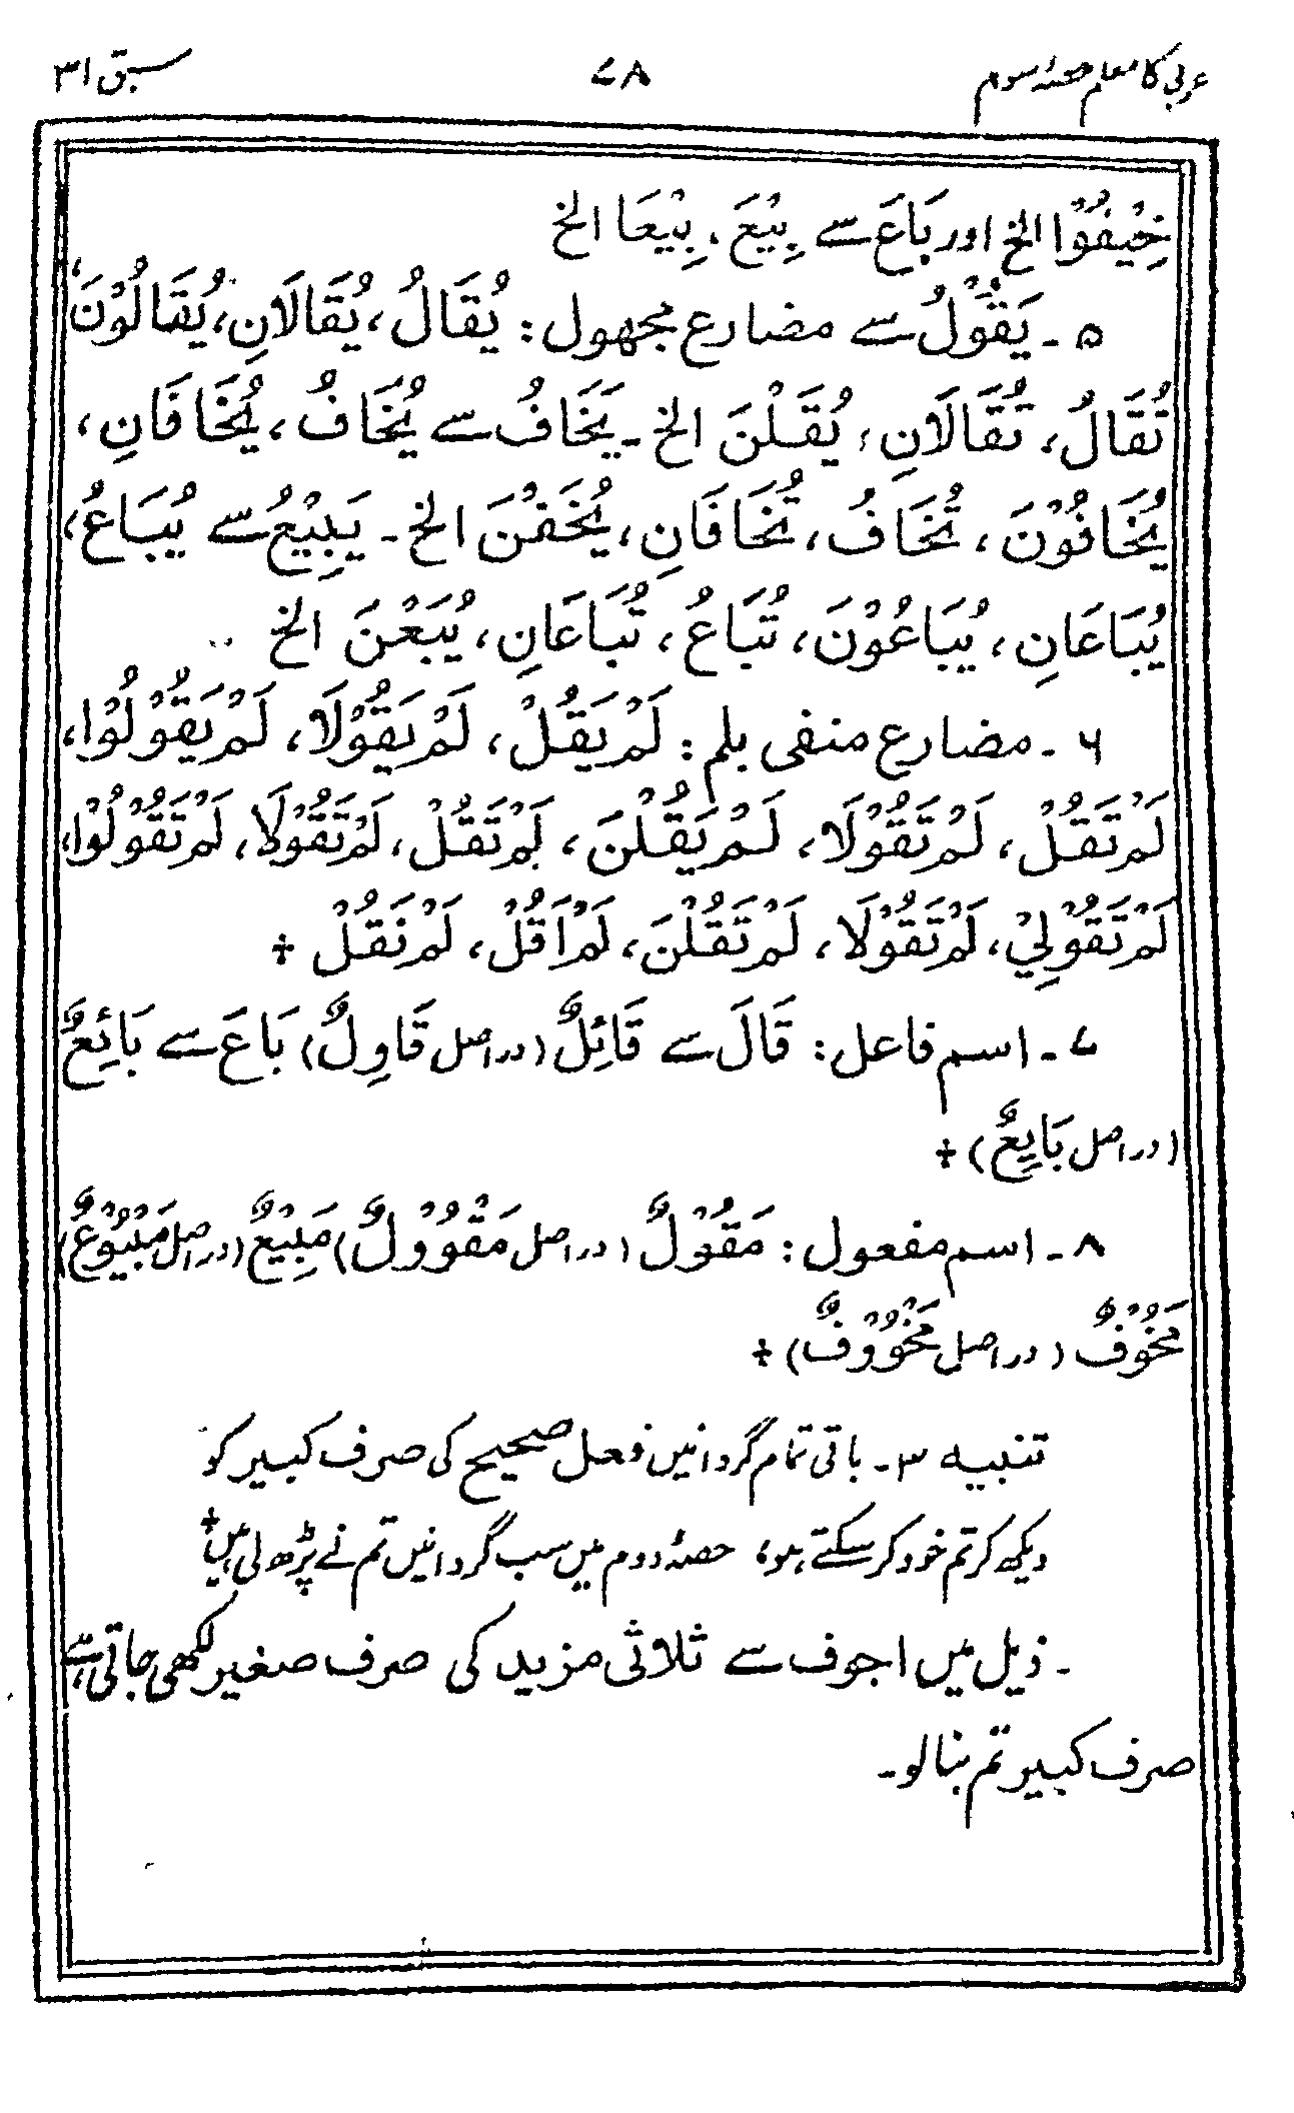 عربی کا معلم حصۂ سوم ۷۸ سبق ۳۱
خِيْفُوْا الخ اور بَاعَ سے بِيْعَ، بِيْعَا الخ
۵ ۔ يَقُوْلُ سے مضارع مجہول: يُقَالُ، يُقَالَانِ، يُقَالُوْنَ،
تُقَالُ، تُقَالَانِ، يُقَلْنَ الخ ۔ يَخَافُ سے يُخَافُ، يُخَافَانِ،
يُخَافُوْنَ، تُخَافُ، تُخَافَانِ، يُخَفْنَ الخ ۔ يَبِيْعُ سے يُبَاعُ،
يُبَاعَانِ، يُبَاعُوْنَ، تُبَاعُ، تُبَاعَانِ، يُبَعْنَ الخ
۶ ۔ مضارع منفی بلم: لَمْ يَقُلْ، لَمْ يَقُوْلَا، لَمْ يَقُوْلُوْا،
لَمْ تَقُلْ، لَمْ تَقُوْلَا، لَمْ يَقُلْنَ، لَمْ تَقُلْ، لَمْ تَقُوْلَا، لَمْ تَقُوْلُوْا،
لَمْ تَقُوْلِيْ، لَمْ تَقُوْلَا، لَمْ تَقُلْنَ، لَمْ اَقُلْ، لَمْ نَقُلْ ÷
۷ ۔ اسم فاعل: قَالَ سے قَائِلٌ (دراصل قَاوِلٌ) بَاعَ سے بَائِعٌ
(دراصل بَايِعٌ) ÷
۸ ۔ اسم مفعول: مَقُوْلٌ (دراصل مَقْوُوْلٌ) مَبِيْعٌ (دراصل مَبْيُوْعٌ)
مَخُوْفٌ (دراصل مَخْوُوْفٌ) ÷
تنبیہ ۳ ۔ باقی تمام گردانیں فعل صحیح کی صرف کبیر کو
دیکھ کر تم خود کر سکتے ہو، حصۂ دوم میں سب گردانیں تم نے پڑھ لی ہیں ÷
۔ ذیل میں اجوف سے ثلاثی مزید کی صرف صغیر لکھی جاتی ہے،
صرف کبیر تم بنا لو ۔